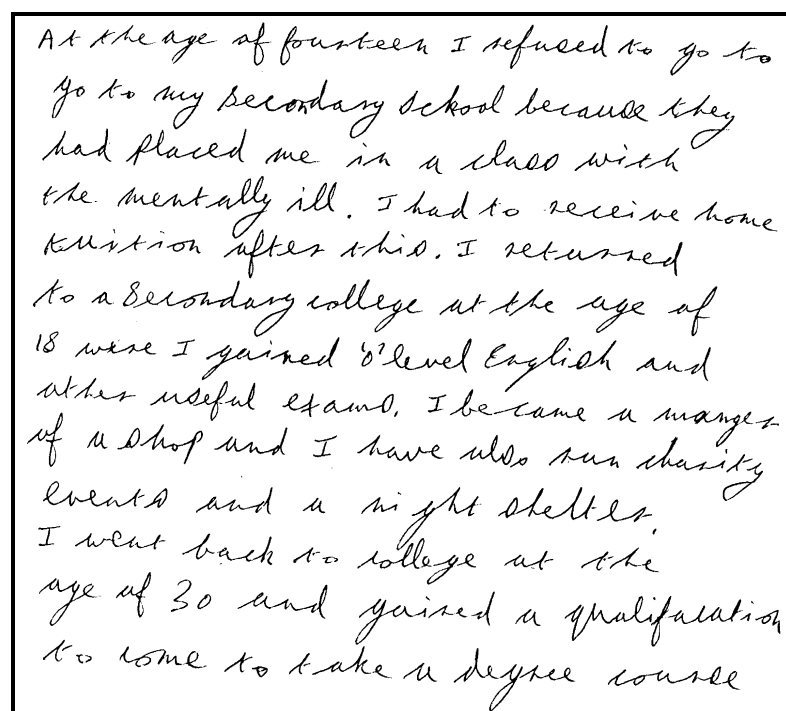 At the age of fourteen I refused to go to
go to my secondary school because they
had placed me in a class with
the mentally ill. I had to receive home
tuition after this. I returned
to a secondary college at the age of
18 were I gained 'o' level English and
other useful exams. I became a manger
of a shop and I have also run charity
events and a night shelter.
I went back to college at the
age of 30 and gained a qualifacation
to come to take a degree course